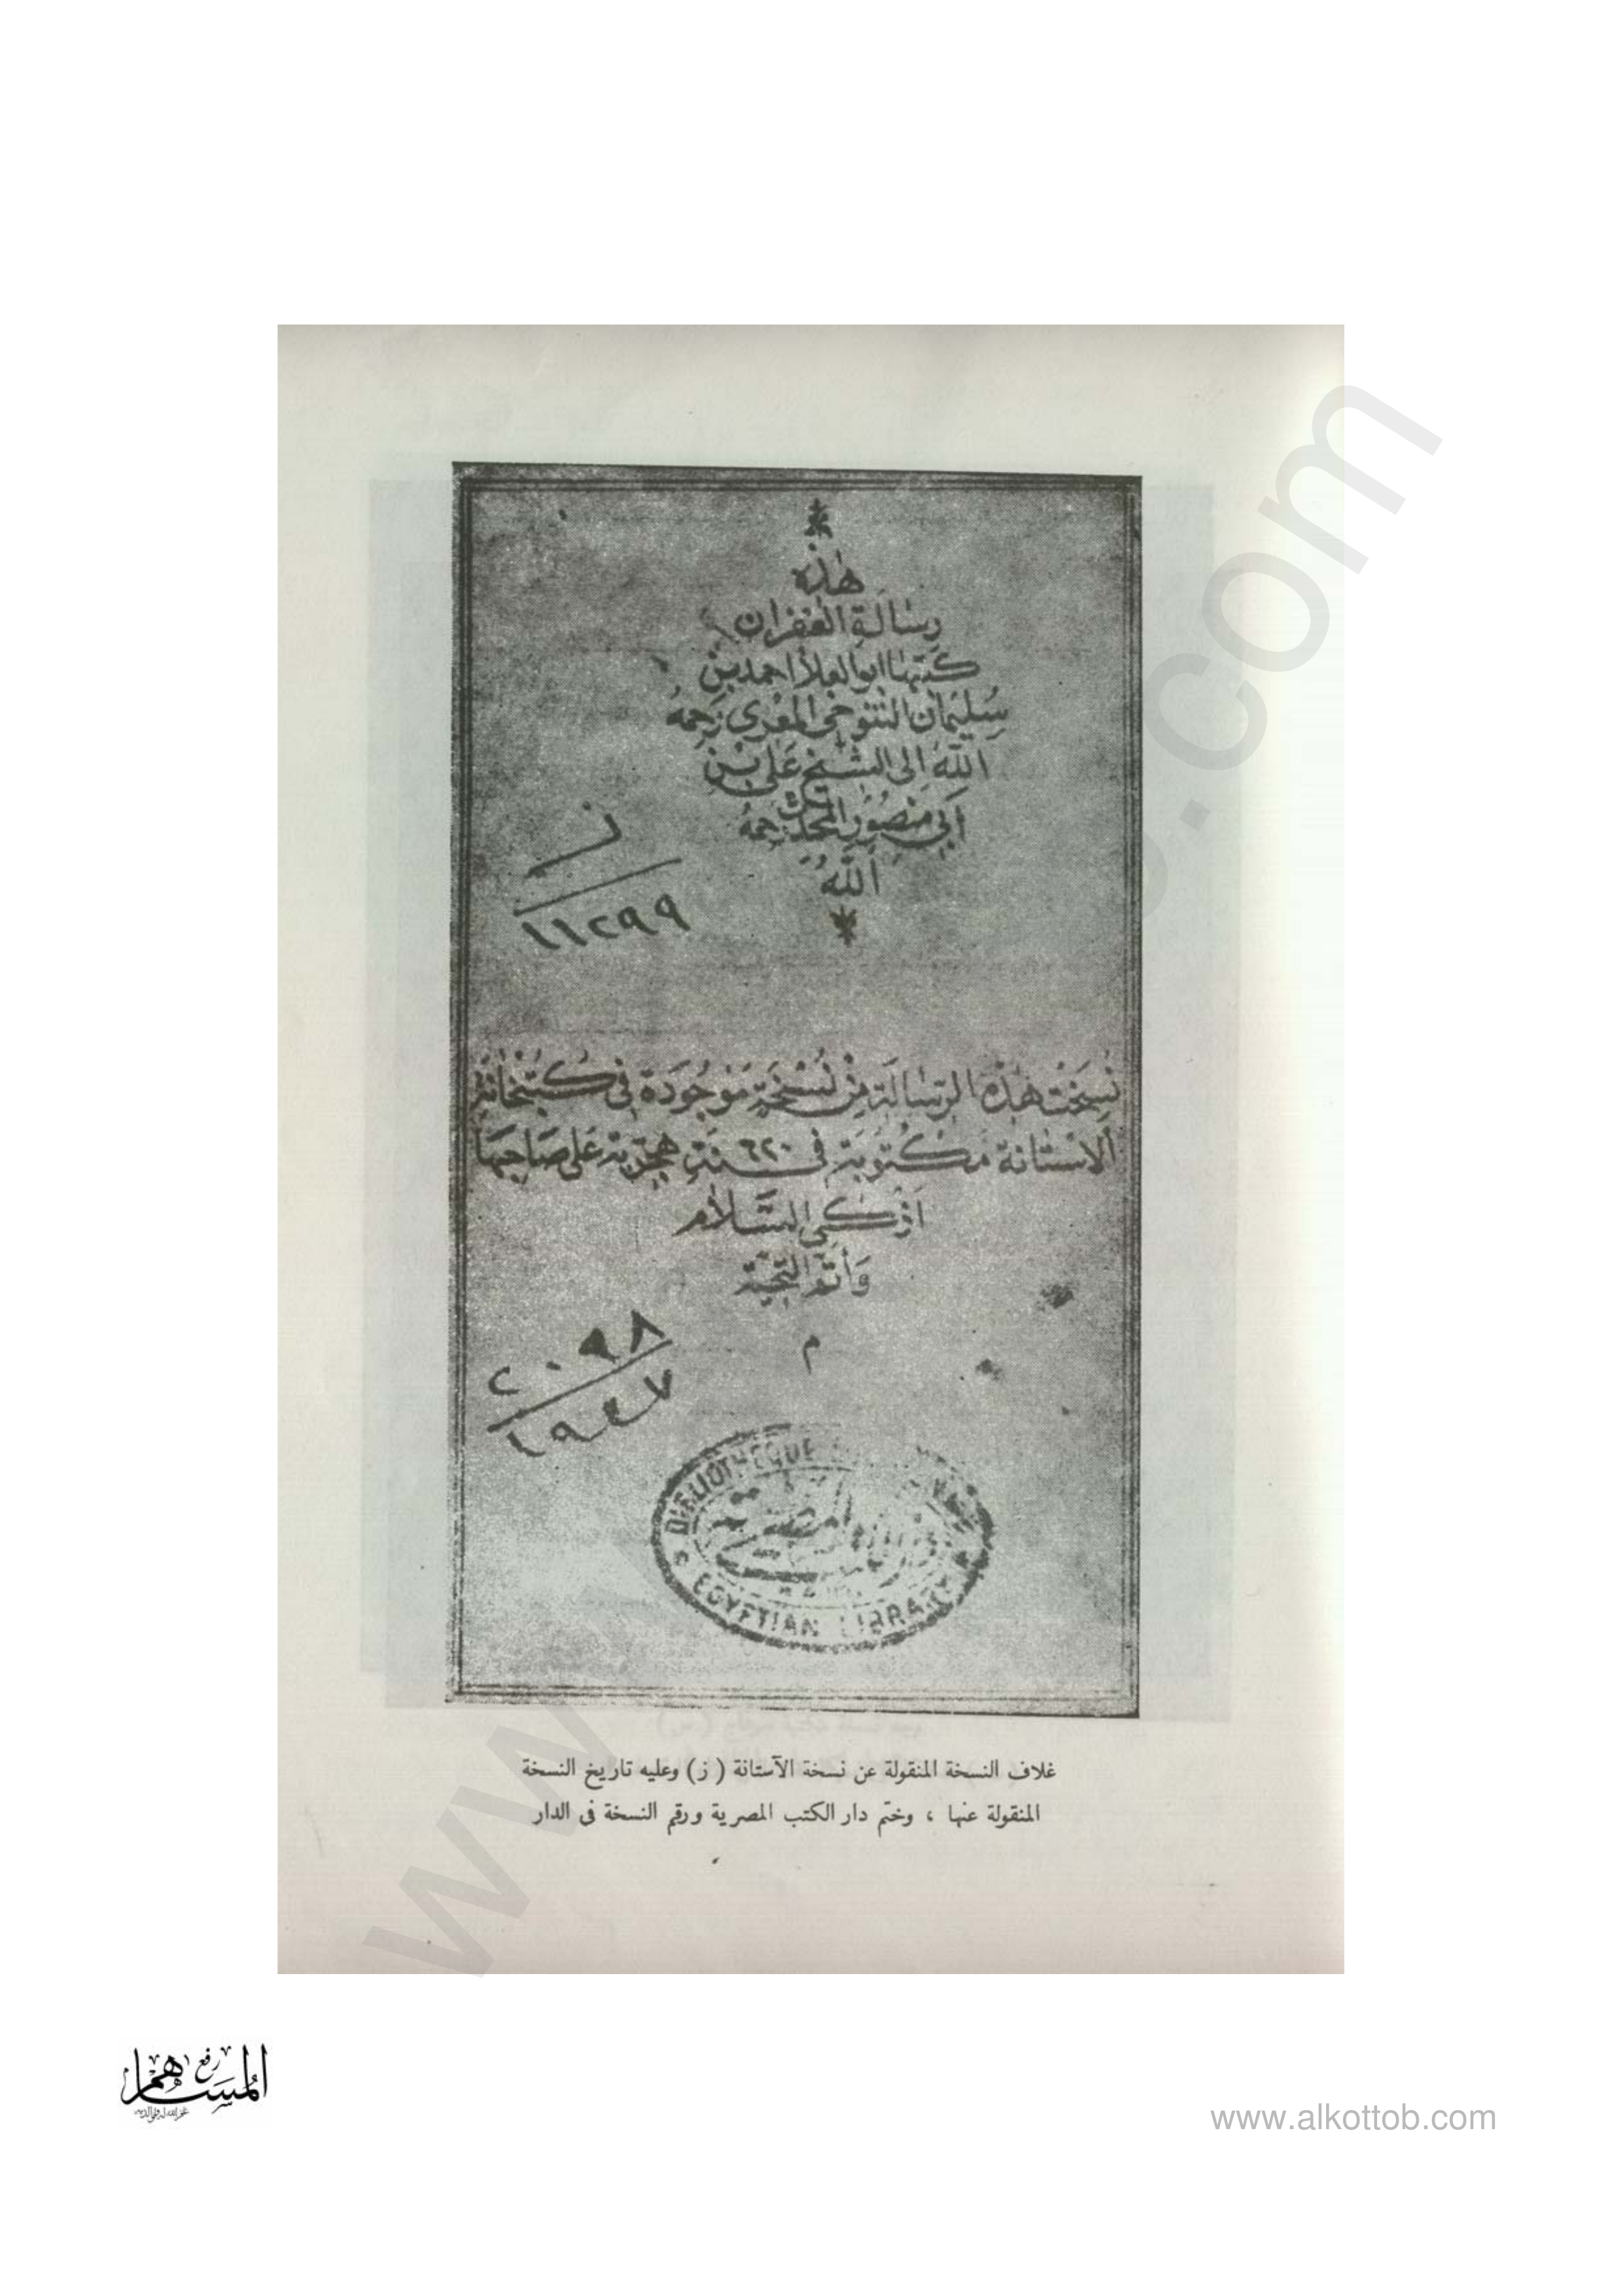 هذه
رسالة الغفران
كتبها ابو العلا احمد بن
سليمان التنوخى المعرى رحمه
الله الى الشيخ على بن
أبى منصور رحمه
الله
ز
١١٢٩٩
نسخت هذه الرسالة من نسخة موجودة فى كتبخانة
الاستانة مكتوبة فى سنة ٦٢٠ هجرية على صاحبها
ازكى السلام
وأتم التحية
م
٢٠٩٨
١٩٤٧
BIBLIOTHEQUE
المصرية
EGYPTIAN LIBRARY
غلاف النسخة المنقولة عن نسخة الآستانة ( ز) وعليه تاريخ النسخة
المنقولة عنها ، وختم دار الكتب المصرية ورقم النسخة فى الدار
رفع
المساهم
غفر الله له ولوالديه
www.alkottob.com